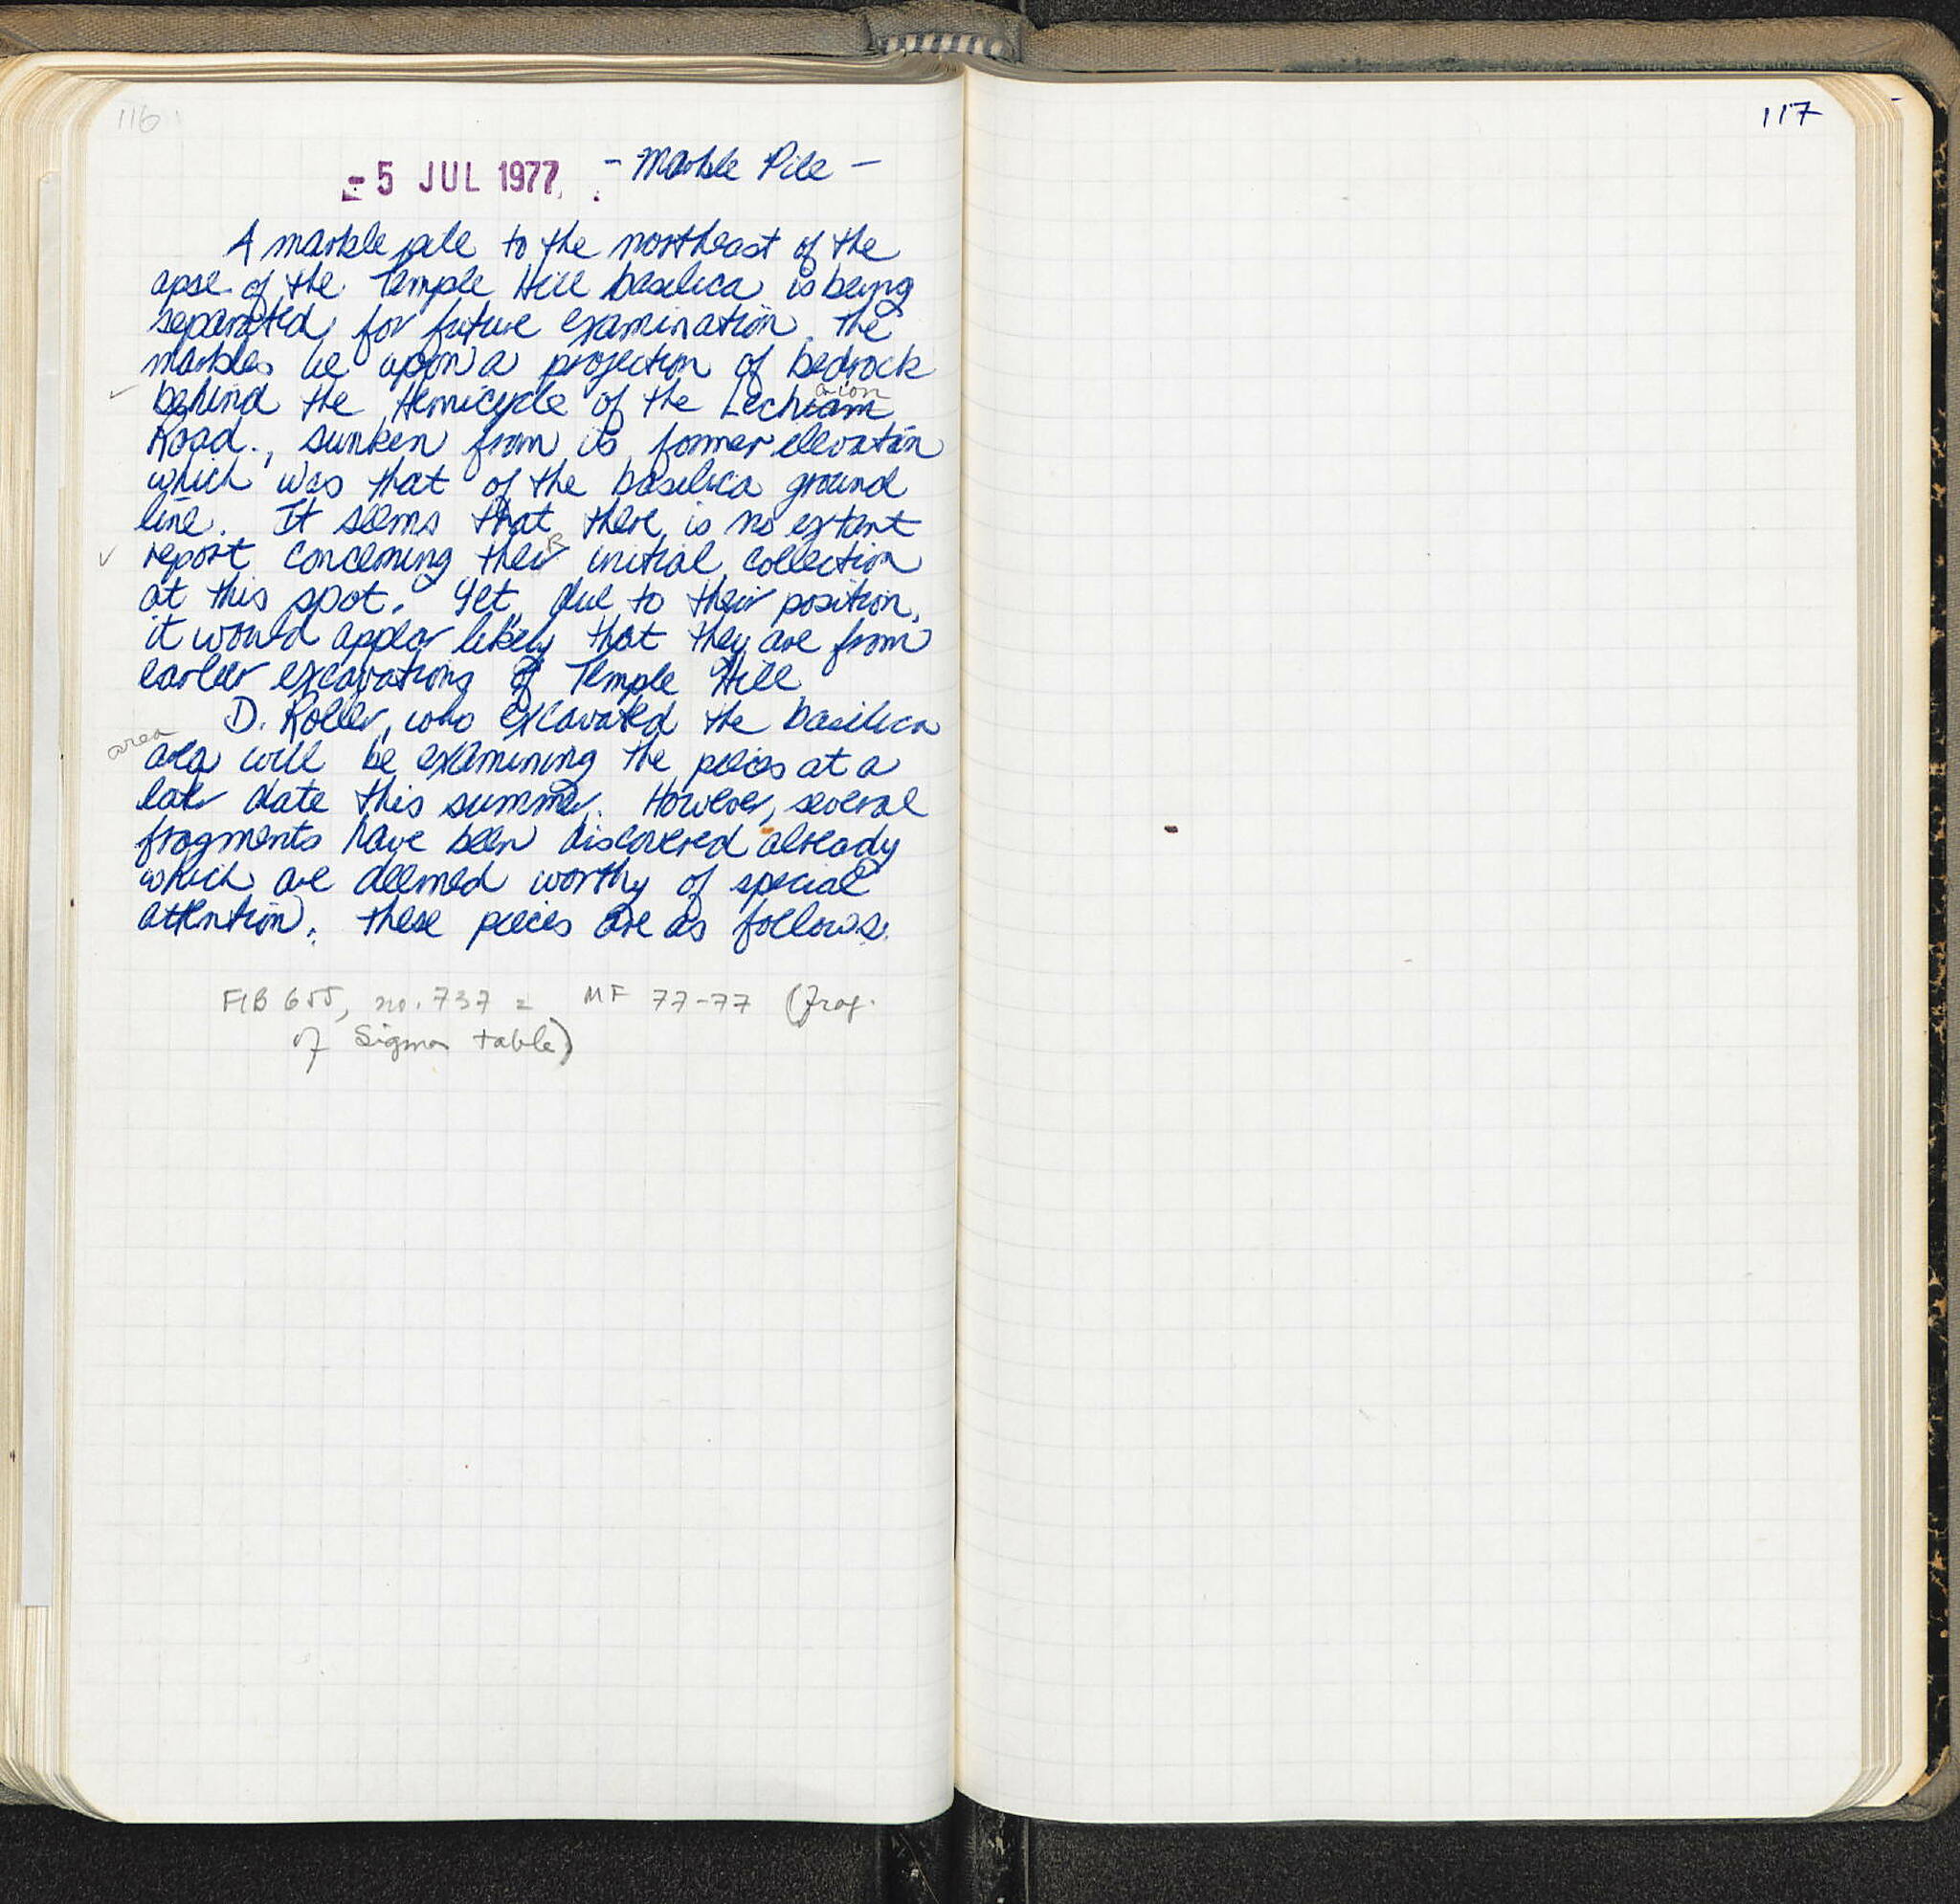 116
- 5 JUL 1977 - Marble Pile -
A marble pile to the northeast of the
apse of the Temple Hill basilica is being
separated for future examination. The
marbles lie upon a projection of bedrock
behind the Hemicycle of the Lechiam aion
Road., sunken from its former elevation
which was that of the basilica ground
line. It seems that there is no extant
report concerning their initial collection
at this spot. Yet, due to their position,
it would appear likely that they are from
earlier excavations of Temple Hill
D. Roller, who excavated the basilica
area
area will be examining the pieces at a
later date this summer. However, several
fragments have been discovered already
which are deemed worthy of special
attention. These pieces are as follows.
FIB 655, no. 737 = MF 77-77 (frag.
of Sigma table)
117